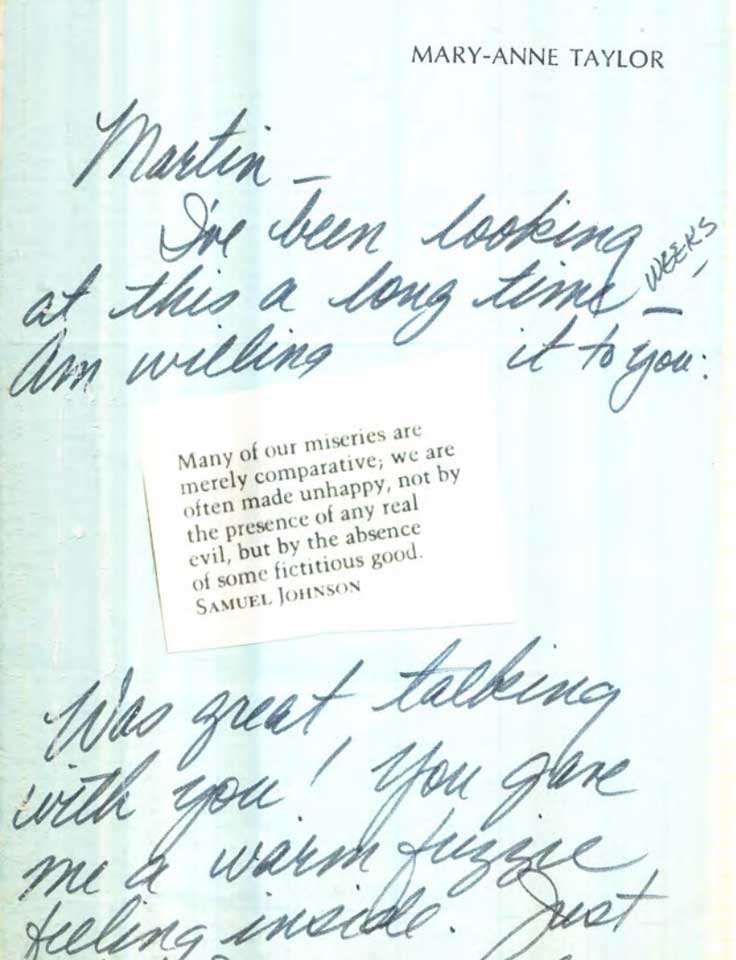 MARY-ANNE TAYLOR
Martin —
I've been looking
at this a long time — WEEKS
Am willing it to you:
Many of our miseries are
merely comparative; we are
often made unhappy, not by
the presence of any real
evil, but by the absence
of some fictitious good.
SAMUEL JOHNSON
Was great talking
with you! You gave
me a warm fuzzie
feeling inside. Just